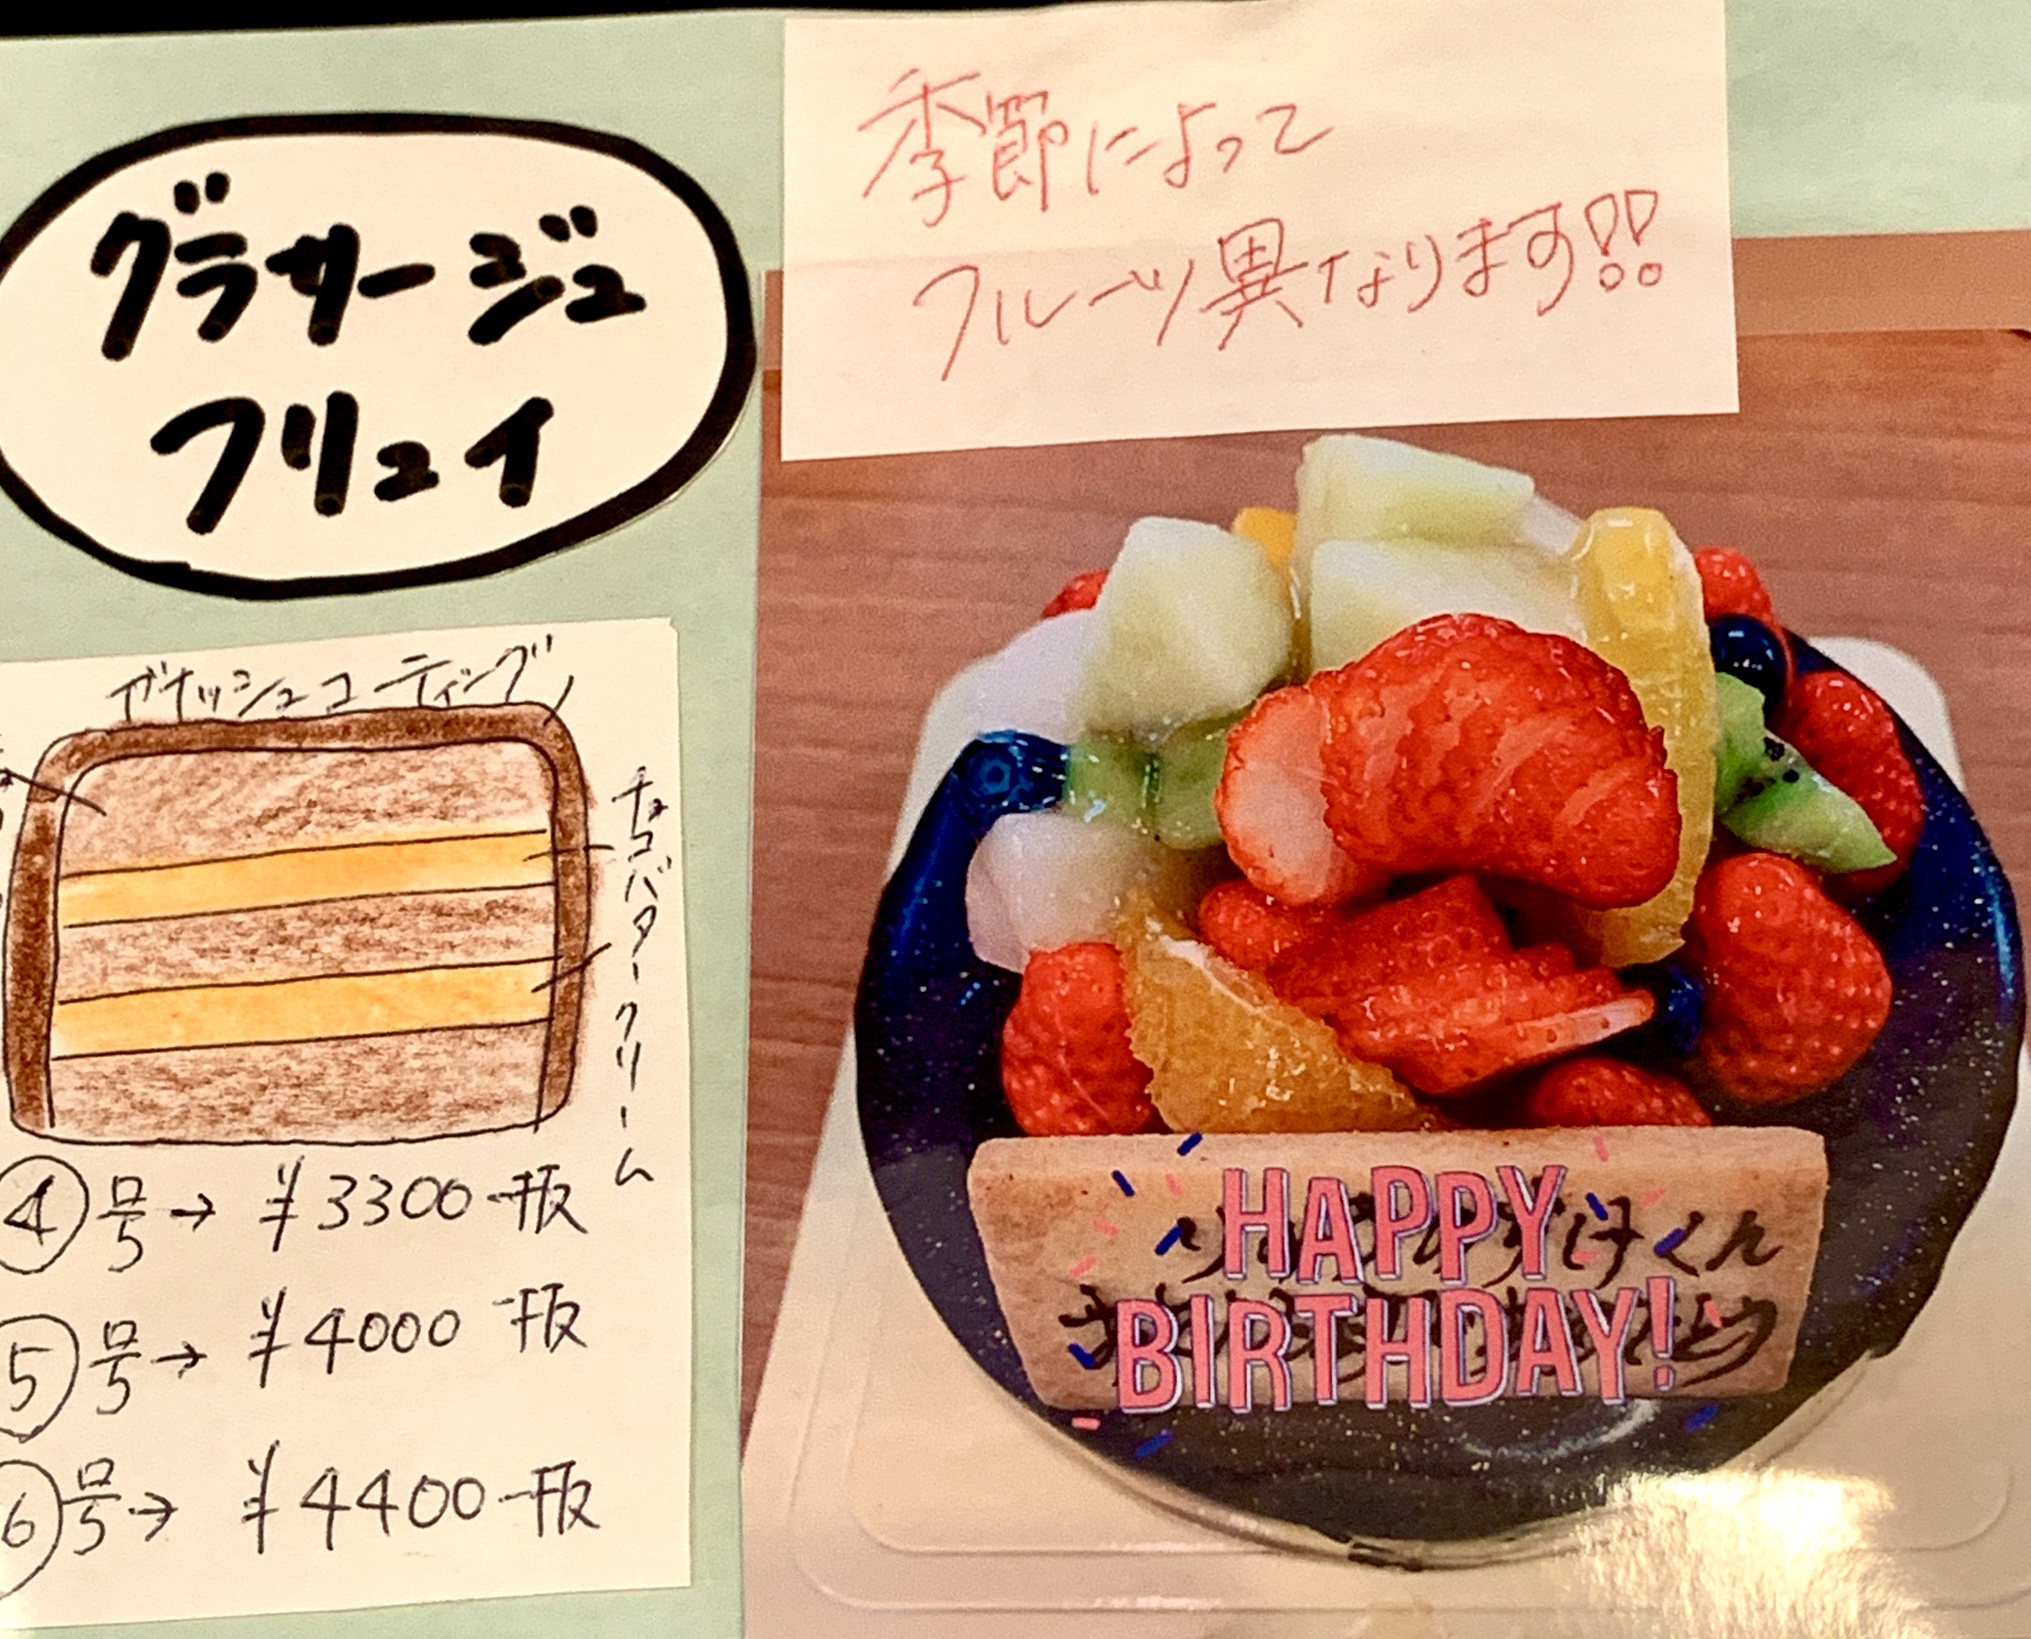 グラサージュ
フリュイ
季節によって
フルーツ異なります!!
ガナッシュコーティング
チョコバタークリーム
④号→ ¥3300-税
⑤号→ ¥4000-税
⑥号→ ¥4400-税
HAPPY
BIRTHDAY!